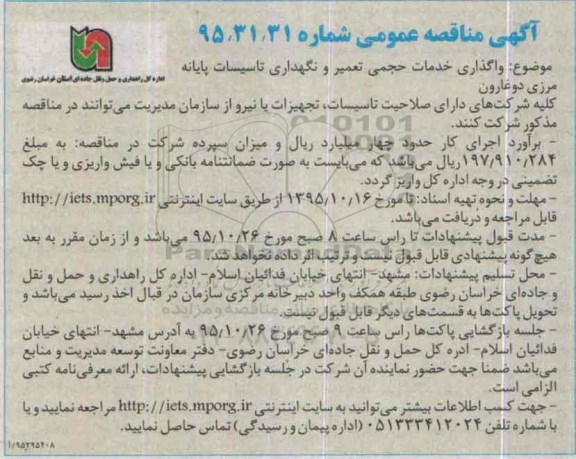 آگهی مناقصه عمومی شماره ۹۵،۳۱،۳۱
اداره کل راهداری و حمل ونقل جاده ای استان خراسان رضوی
موضوع: واگذاری خدمات حجمی تعمیر و نگهداری تاسیسات پایانه
مرزی دوغارون
کلیه شرکت‌های دارای صلاحیت تاسیسات، تجهیزات یا نیرو از سازمان مدیریت می‌توانند در مناقصه
مذکور شرکت کنند.
- برآورد اجرای کار حدود چهار میلیارد ریال و میزان سپرده شرکت در مناقصه: به مبلغ
۱۹۷/۹۱۰/۲۸۴ ریال می‌باشد که می‌بایست به صورت ضمانتنامه بانکی و یا فیش واریزی و یا چک
تضمینی در وجه اداره کل واریز گردد.
- مهلت و نحوه تهیه اسناد: تا مورخ ۱۳۹۵/۱۰/۱۶ از طریق سایت اینترنتی http://iets.mporg.ir
قابل مراجعه و دریافت می‌باشد.
- مدت قبول پیشنهادات تا راس ساعت ۸ صبح مورخ ۹۵/۱۰/۲۶ می‌باشد و از زمان مقرر به بعد
هیچ گونه پیشنهادی قابل قبول نیست و ترتیب اثر داده نخواهد شد.
- محل تسلیم پیشنهادات: مشهد- انتهای خیابان فدائیان اسلام- اداره کل راهداری و حمل و نقل
و جاده‌ای خراسان رضوی طبقه همکف واحد دبیرخانه مرکزی سازمان در قبال اخذ رسید می‌باشد و
تحویل پاکت‌ها به قسمت‌های دیگر قابل قبول نیست.
- جلسه بازگشایی پاکت‌ها راس ساعت ۹ صبح مورخ ۹۵/۱۰/۲۶ به آدرس مشهد- انتهای خیابان
فدائیان اسلام- ادره کل حمل و نقل جاده‌ای خراسان رضوی- دفتر معاونت توسعه مدیریت و منابع
می‌باشد ضمنا جهت حضور نماینده آن شرکت در جلسه بازگشایی پیشنهادات، ارائه معرفی‌نامه کتبی
الزامی است.
- جهت کسب اطلاعات بیشتر می‌توانید به سایت اینترنتی http://iets.mporg.ir مراجعه نمایید و یا
با شماره تلفن ۰۵۱۳۳۳۴۱۲۰۲۴ (اداره پیمان و رسیدگی) تماس حاصل نمایید.
۱/۹۵۲۹۵۴۰۸